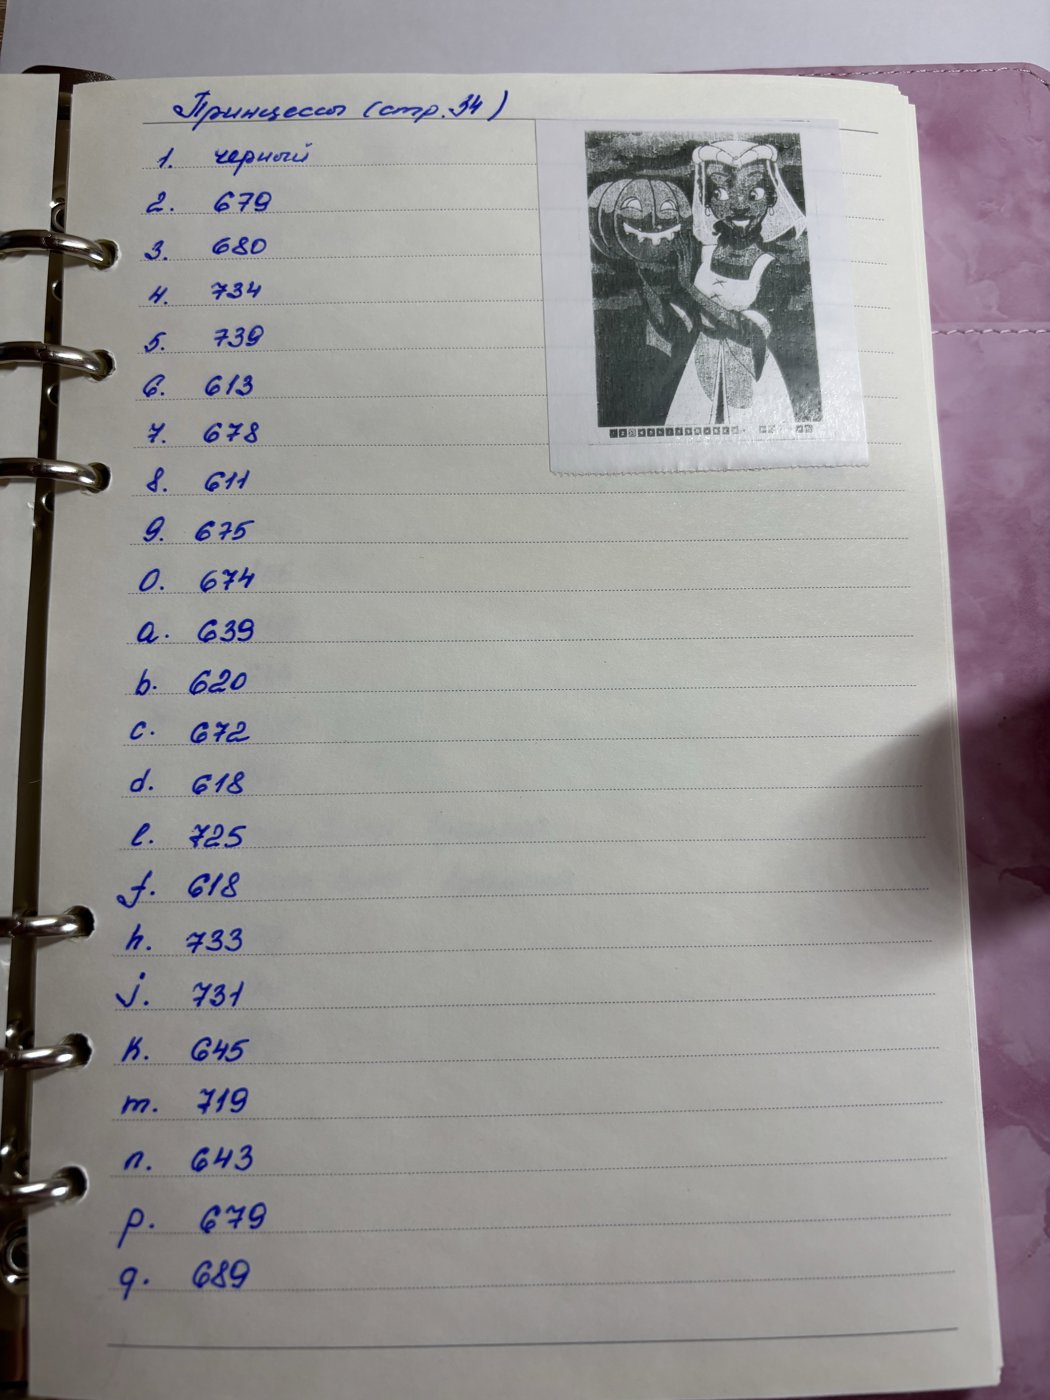 Принцессы (стр. 34)
1. черный
2. 679
3. 680
4. 734
5. 739
6. 613
7. 678
8. 611
9. 675
0. 674
a. 639
b. 620
c. 672
d. 618
e. 725
f. 618
h. 733
j. 731
k. 645
m. 719
n. 643
p. 679
q. 689